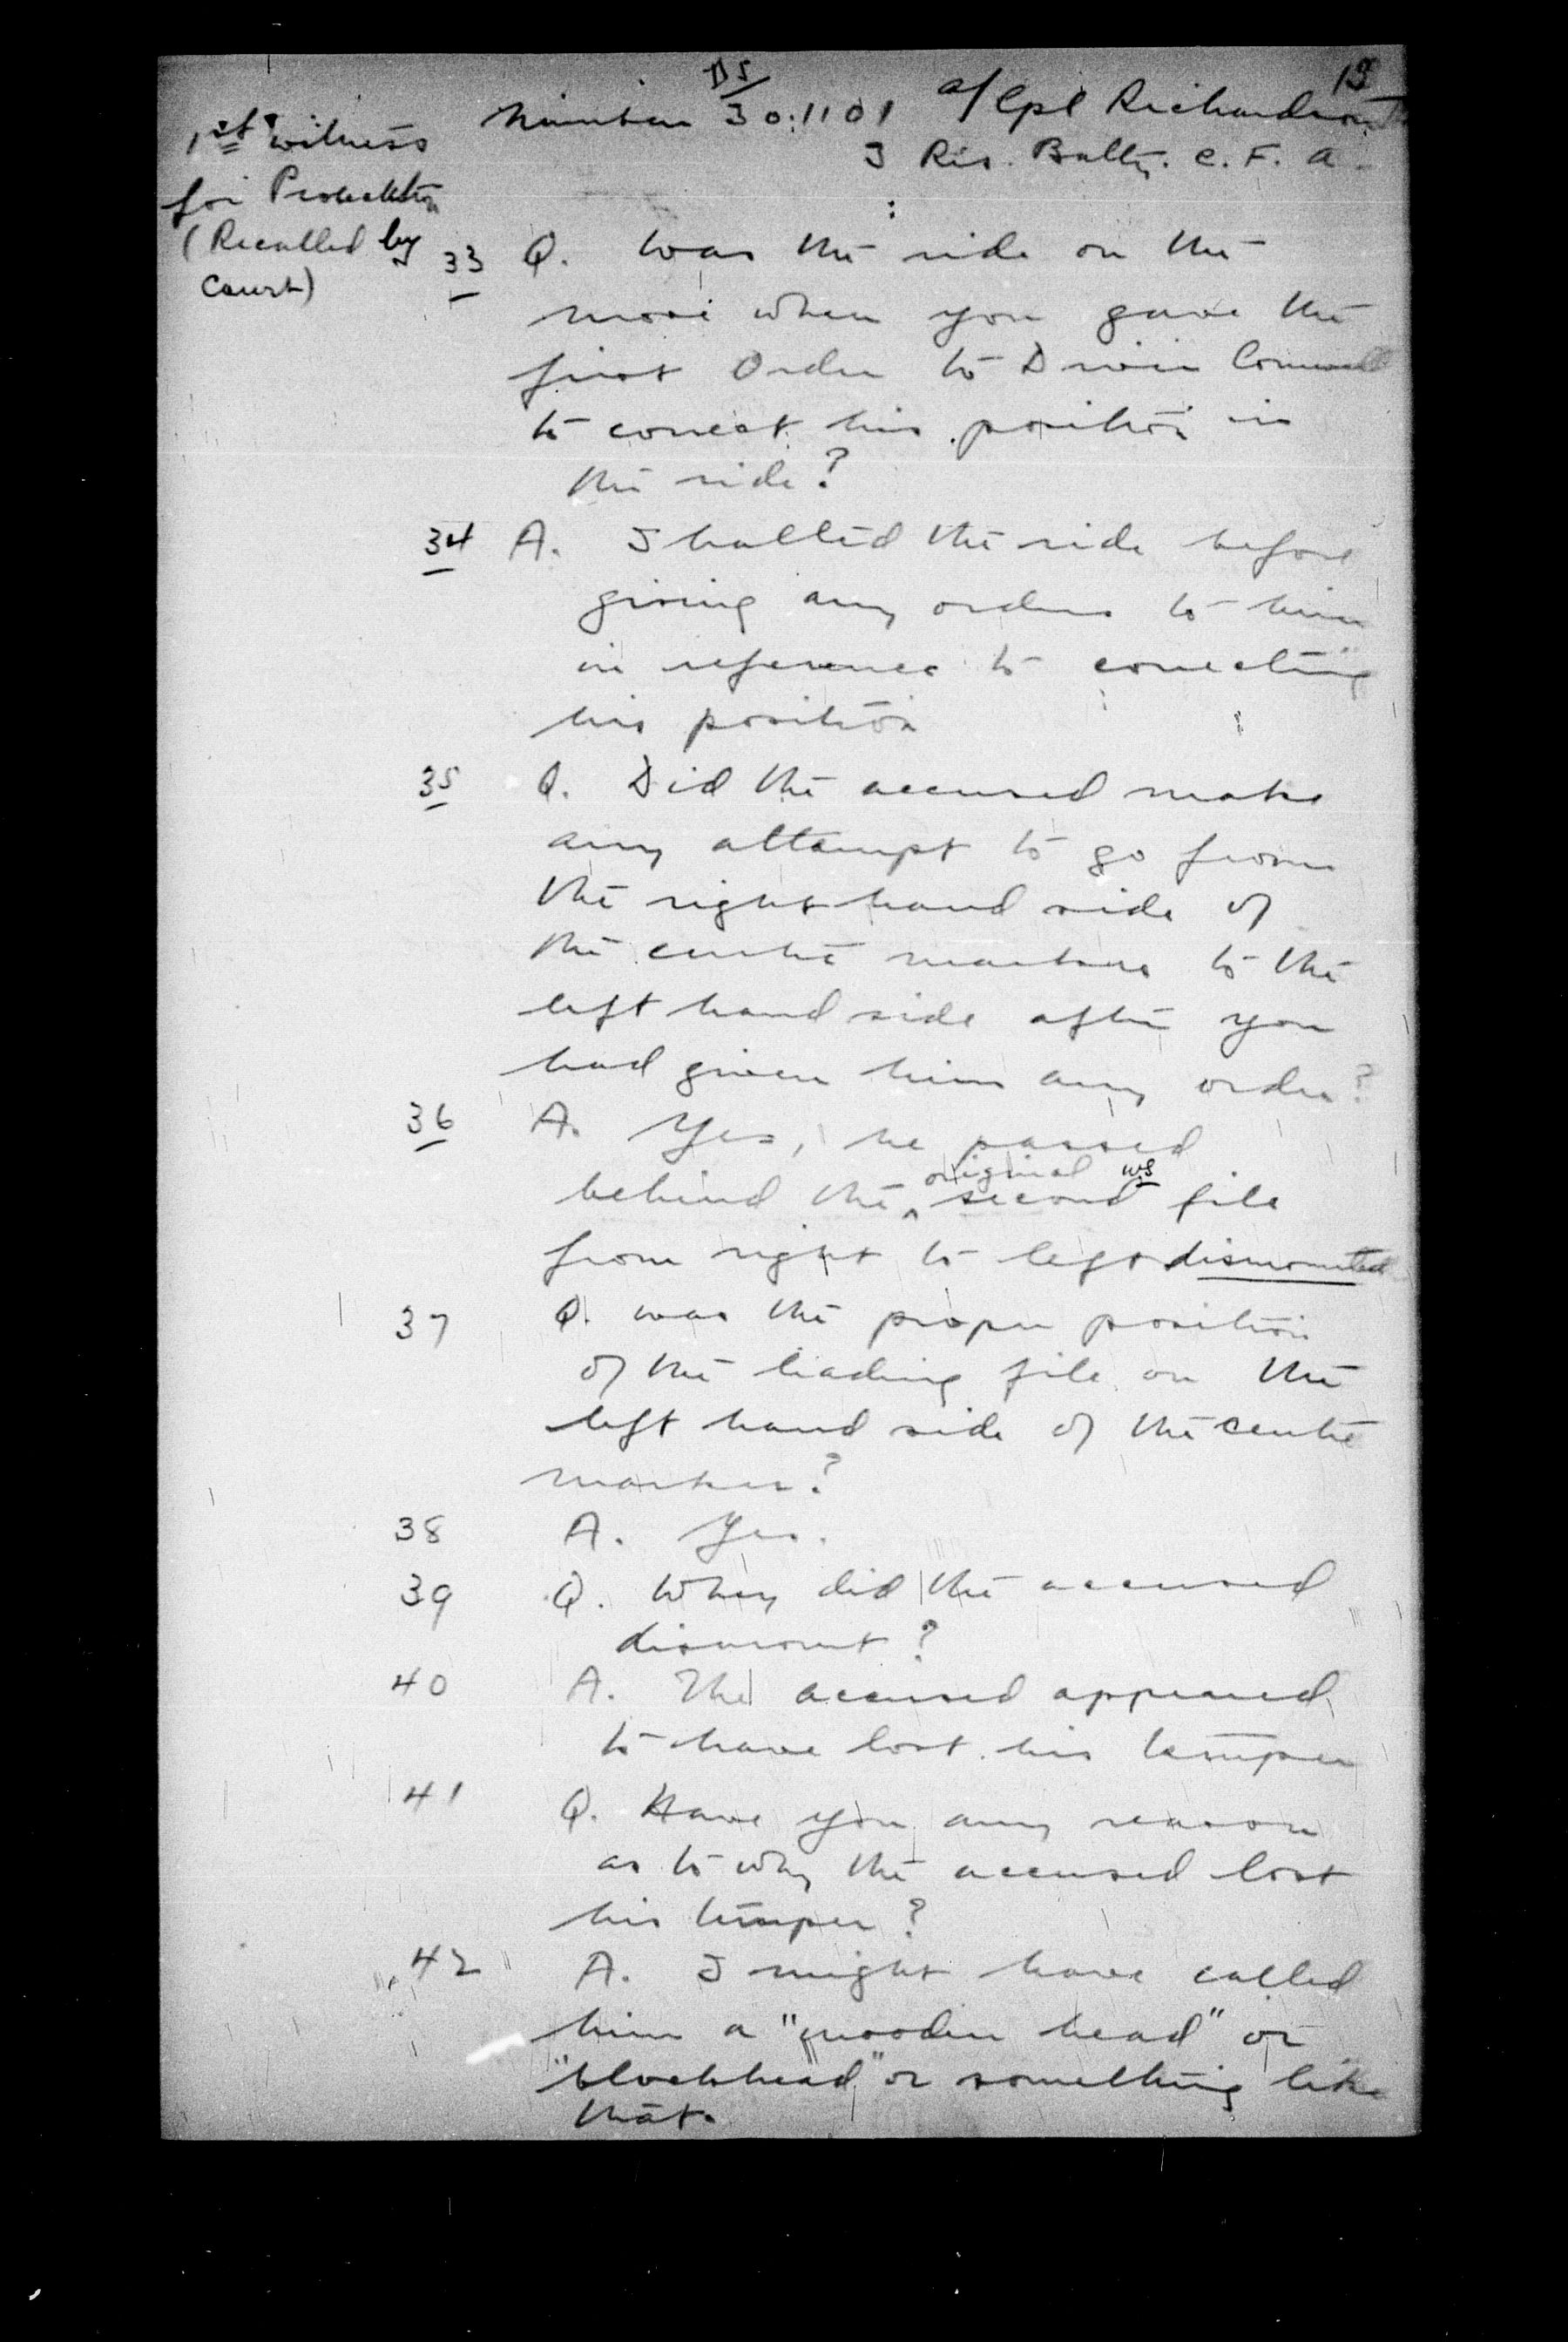 13
1st witness
for Prosecution
(Recalled by
Court)
Number 301101 a/Cpl Richardson
3 Res. Batty. C. F. A.
33 Q. Was the ride on the
move when you gave the
first Order to Driver
to correct his position in
the ride?
34 A. I halted the ride before
giving any orders to him
in reference to correcting
his position
35 Q. Did the accused make
any attempt to go from
the right hand side of
the centre markers to the
left hand side after you
had given him any order?
36 A. Yes, he passed
behind the original second file
from right to left dismounted
37 Q. Was the proper position
of the leading file on the
left hand side of the centre
marker?
38 A. Yes.
39 Q. Why did the accused
dismount?
40 A. The accused appeared
to have lost his temper
41 Q. Have you any reason
as to why the accused lost
his temper?
42 A. I might have called
him a "wooden head" or
"blockhead" or something like
that.